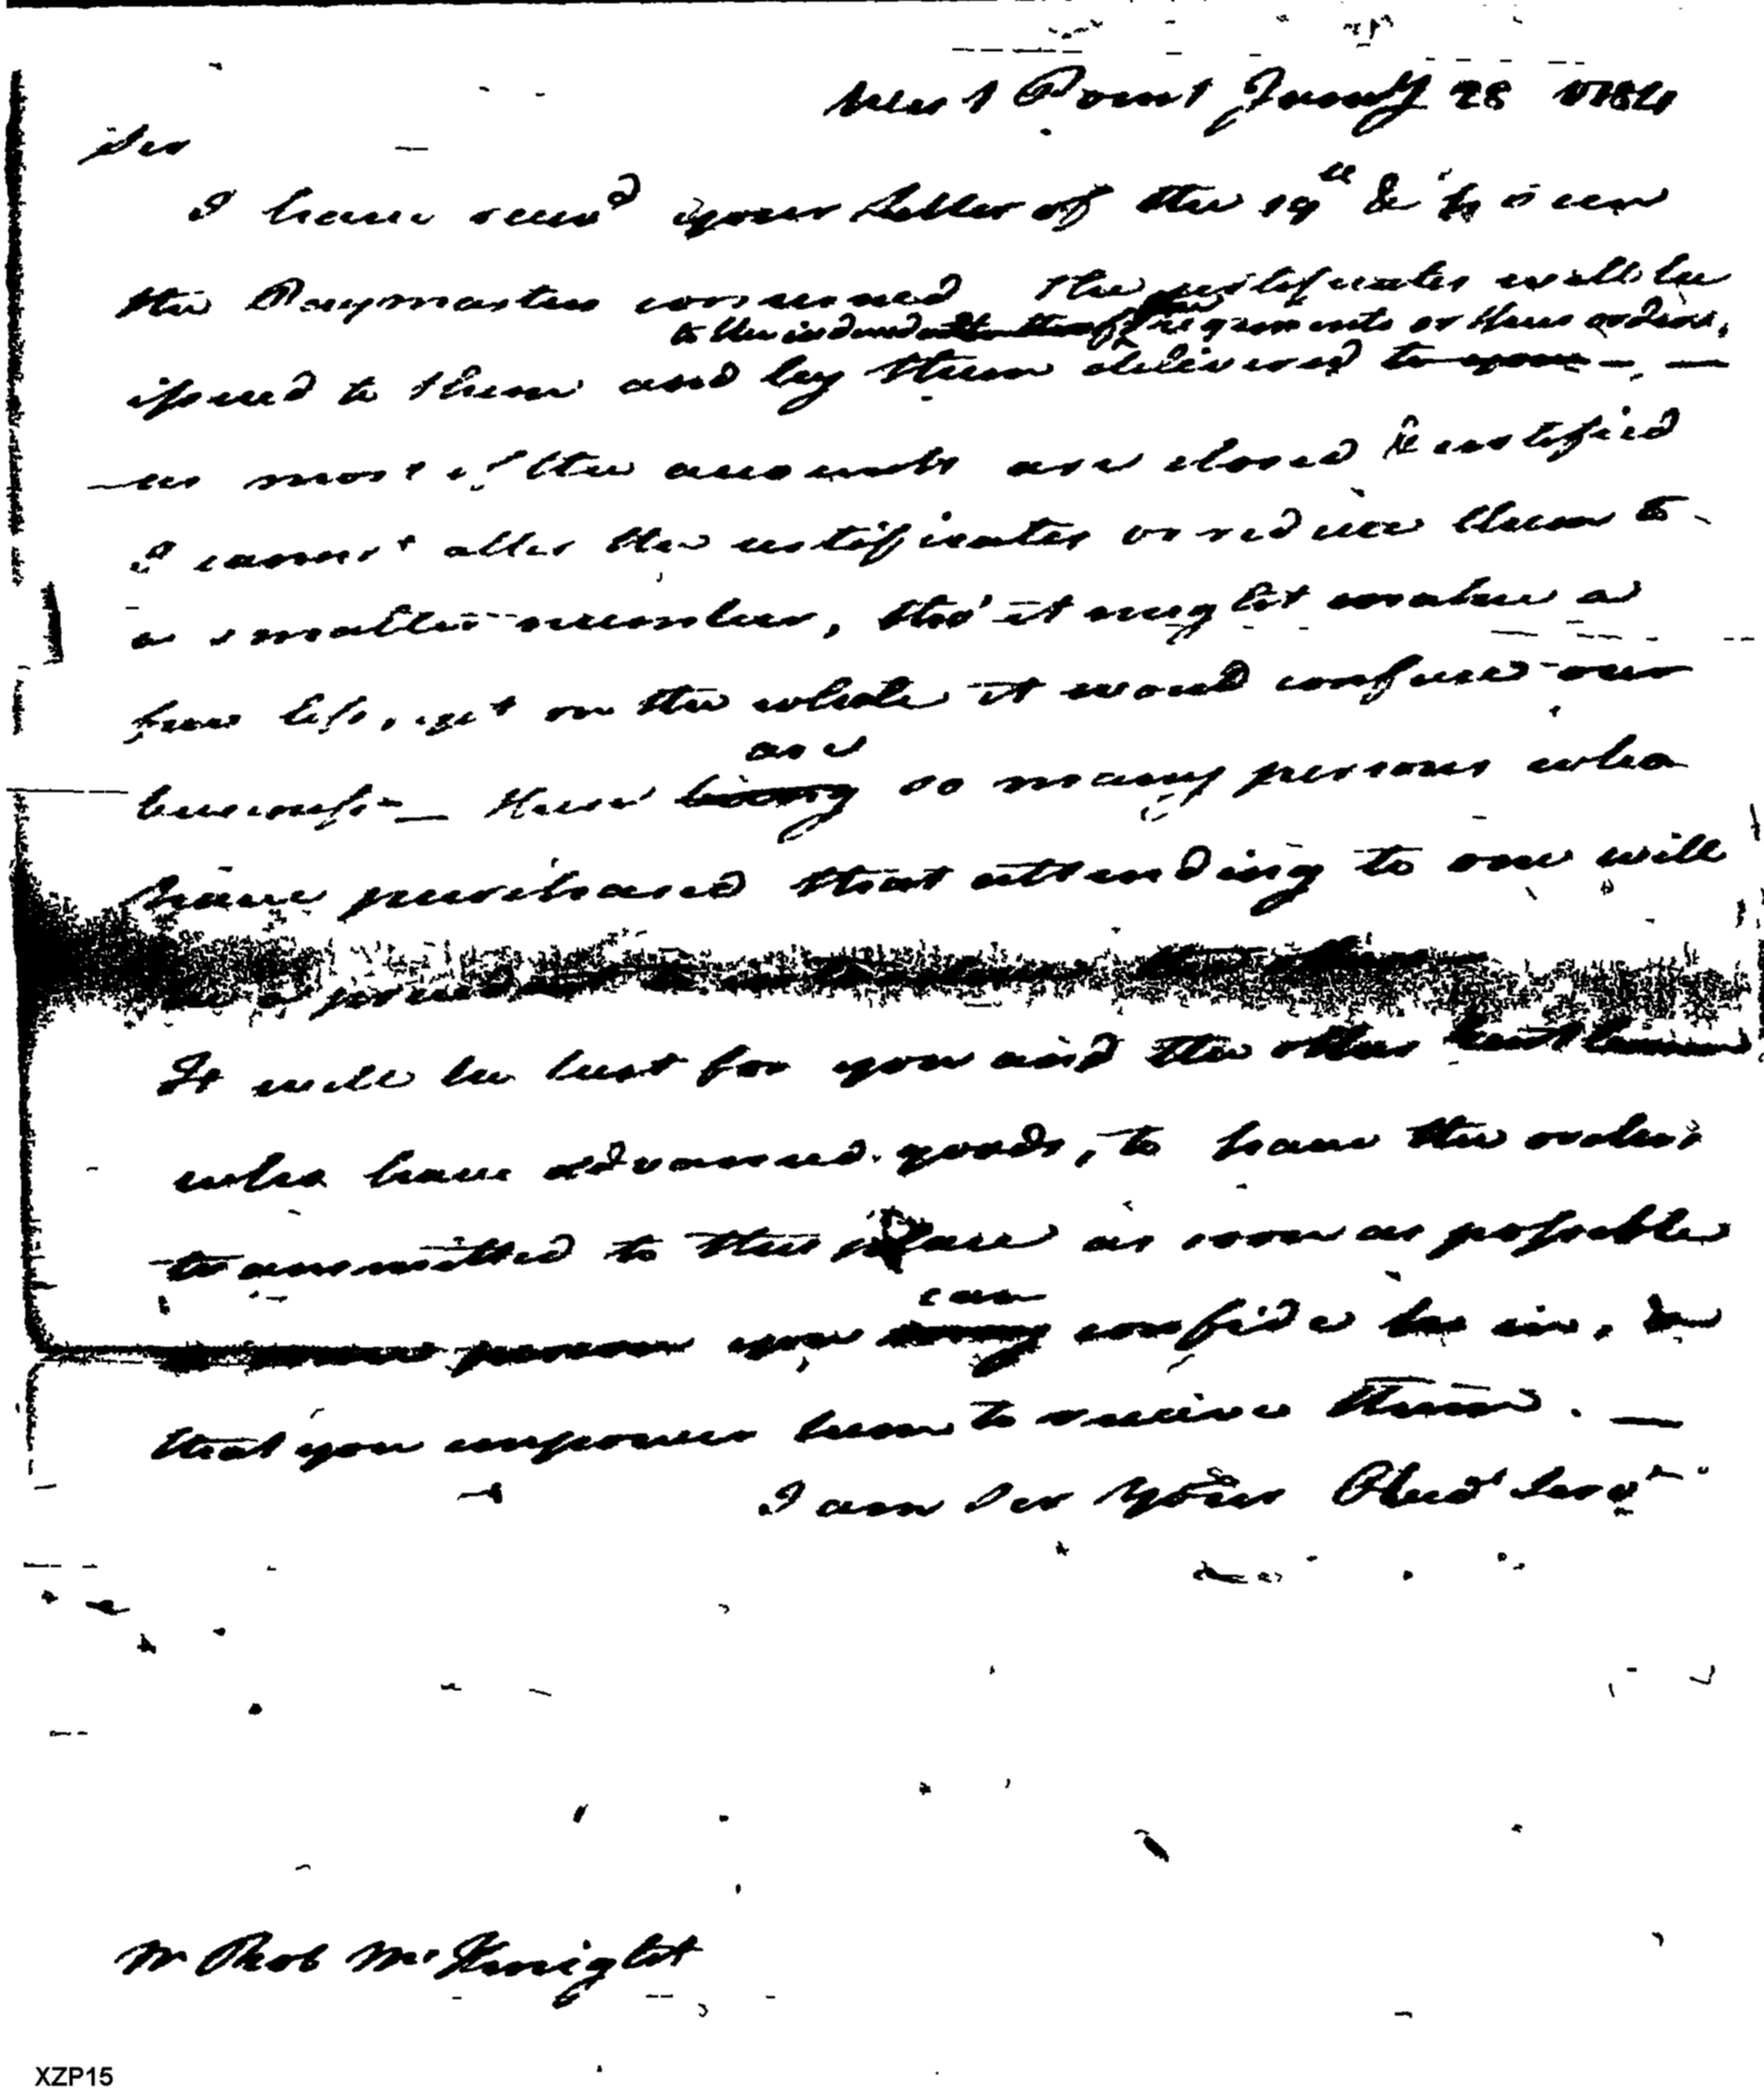 West Point Jany 28 1784
Sir
I have recvd your Letter of the 19th & have seen
the Paymasters concerned The certificates will be
issued to them and by them delivered to your — —
to the individuals of the regiments or their orders,
as most of the accounts are closed & certified
I cannot alter the certificates or reduce them to
a smaller number, tho' it might make a
few less, yet on the whole it would confuse our
and
business — there being so many persons who
have purchased that attending to one will
be a precedent
It will be best for you and the other Gentlemen
who have advanced goods, to have the orders
transmitted to this place as soon as possible
can
person you may confide in, &
that you empower him to receive them. —
I am Sir Your Obed Servt
Mr Rob McKnight
XZP15